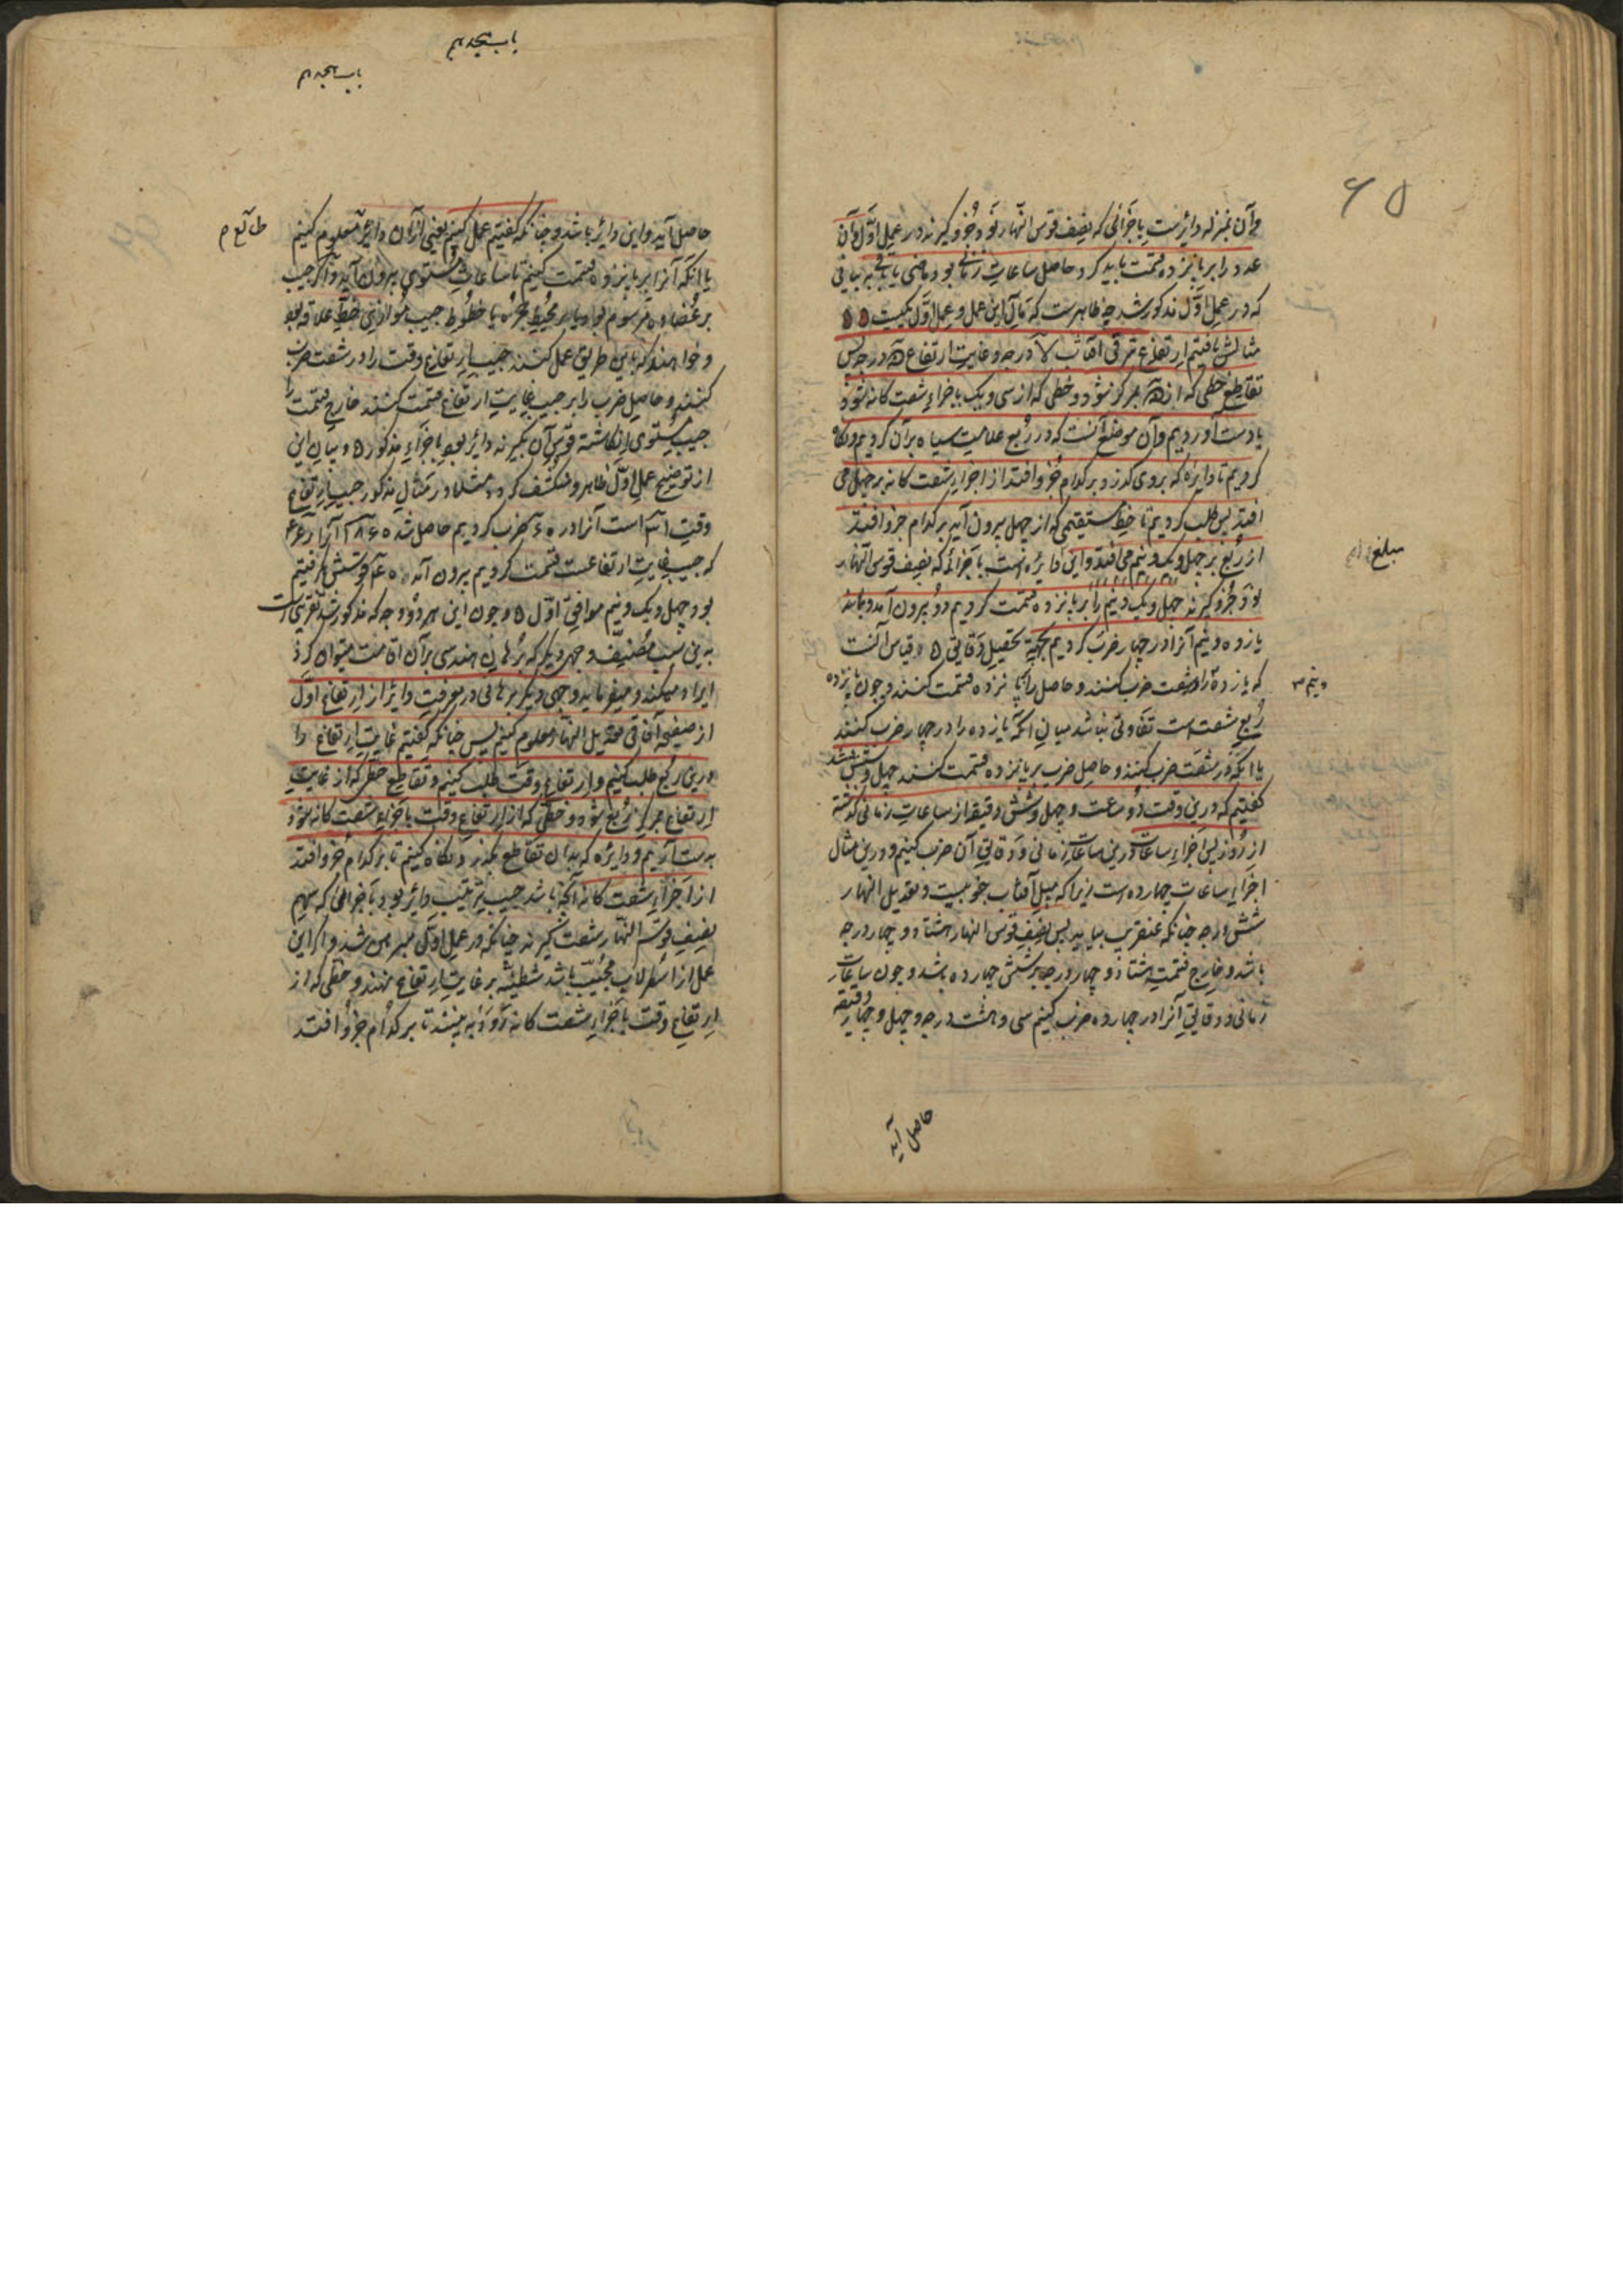 و آن بمنزله دائرست باجزائی که نصف قوس النهار نود جزو گیرند در عمل اول و آن
عدد را بر پانزده قسمت باید کرد و حاصل ساعات زمانی بود ماضی یا باقی به بیانی
که در عمل اول مذکور شد چه ظاهرست که مآل این عمل و عمل اول یکیست
مثالش یافتیم ارتفاع شرقی آفتاب لا درجه و غایت ارتفاع درجه پس
تقاطع خطی که از بمرکز شود و خطی که از سی و یک باجزاء شصت گانه شود
بدست آوردیم و آن موضع آنست که در ربع علامت سیاه بر آن کردیم و نگاه
کردیم تا دایره که بروی گذرد بر کدام جزو افتد از اجزاء شصت گانه بر چهل می
افتد پس طلب کردیم تا خط مستقیمی که از چهل بیرون آید بر کدام جزو افتد
از ربع بر چهل و یک و نیم می افتد و این دایره است باجزائی که نصف قوس النهار
نود جزو گیرند چهل و یک و نیم را بر پانزده قسمت کردیم دو بیرون آمد و بماند
یازده و نیم آنرا در چهار ضرب کردیم بجهة تحصیل دقایق و قیاس آنست
که یازده را در شصت ضرب کنند و حاصل را بر پانزده قسمت کنند و چون پانزده
ربع شصت است تفاوتی نباشد میان آنکه یازده را در چهار ضرب کنند
یا آنکه در شصت ضرب کنند و حاصل ضرب بر پانزده قسمت کنند چهل و شش شد پس
گفتیم که درین وقت دو ساعت و چهل و شش دقیقه از ساعات زمانی گذشته
از روز پس اجزاء ساعات درین ساعات زمانی و دقایق آن ضرب کنیم و درین مثال
اجزای ساعات چهارده است زیرا که میل آفتاب جنوبیست و تعدیل النهار
شش درجه چنانکه عنقریب بیاید پس نصف قوس النهار هشتاد و چهار درجه
باشد و خارج قسمت هشتاد و چهار درجه بر شش چهارده باشد و چون ساعات
زمانی و دقایق آنرا در چهارده ضرب کنیم سی و هشت درجه و چهل و چهار دقیقه
حاصل آید
و نیم
مبلغ
۶۵
باب هیجدهم
باب هیجدهم
حاصل آید و این دایر باشد و چنانکه گفتیم عمل کنیم یعنی از آن دایر معلوم کنیم
طالع م
یا آنکه آنرا بر پانزده قسمت کنیم تا ساعات مستوی بیرون آید و اگر جیب
بر عضاده مرسوم بود یا بر محیط حجره یا خطوط جیب موازی خط علاقه بود
و خواهند که باین طریق عمل کنند جیب ارتفاع وقت را در شصت ضرب
کنند و حاصل ضرب را بر جیب غایت ارتفاع قسمت کنند خارج قسمت را
جیب مستوی انگاشته قوس آن بگیرند دایر بود باجزاء مذکوره و بیان این
از توضیح عمل اول ظاهر و منکشف گردد مثلا در مثال مذکور جیب ارتفاع
وقت است آنرا در ضرب کردیم حاصل شد آنرا بر
که جیب غایت ارتفاعست قسمت کردیم بیرون آمد قوسش گرفتیم
بود چهل و یک و نیم موافق اول و چون این هر دو وجه که مذکور شد تقریبی است
بدین سبب مصنف وجهی دیگر که برهان هندسی بر آن اقامت میتوان کرد
ایراد میکند و میفرماید وجهی دیگر برهانی در معرفت دایر از ارتفاع اول
از صفیحه آفاقی تعدیل النهار معلوم کنیم پس چنانکه گفتیم غایت ارتفاع را
درین ربع طلب کنیم و ارتفاع وقت طلب کنیم و تقاطع خطی که از غایت
ارتفاع بمرکز ربع شود و خطی که از ارتفاع وقت باجزاء شصت گانه شود
بدست آریم و دایره که بدان تقاطع بگذرد نگاه کنیم تا بر کدام جزو افتد
از اجزاء شصت گانه آنچه باشد جیب ترتیب دایر بود باجزائی که سهم
نصف قوس النهار شصت گیرند چنانکه در عمل اول مبرهن شد و اگر این
عمل از اسطرلاب مجیب باشد شظیه بر غایت ارتفاع نهند و خطی که از
ارتفاع وقت باجزاء شصت گانه رود به بینند تا بر کدام جزو افتد